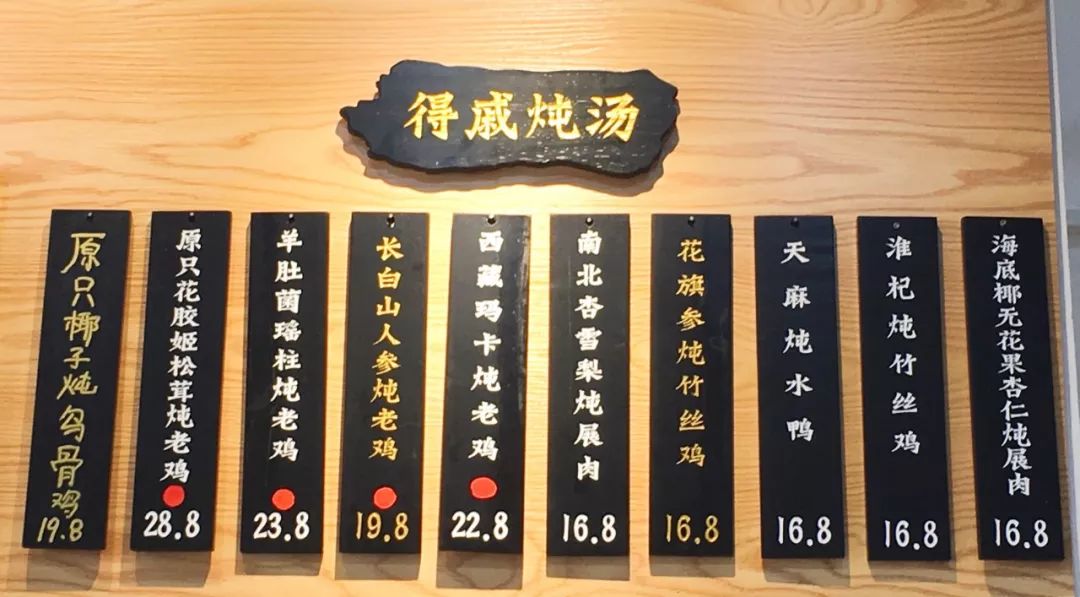 得戚炖汤
原只椰子炖乌骨鸡
19.8
原只花胶姬松茸炖老鸡
28.8
羊肚菌瑶柱炖老鸡
23.8
长白山人参炖老鸡
19.8
西藏玛卡炖老鸡
22.8
南北杏雪梨炖展肉
16.8
花旗参炖竹丝鸡
16.8
天麻炖水鸭
16.8
淮杞炖竹丝鸡
16.8
海底椰无花果杏仁炖展肉
16.8